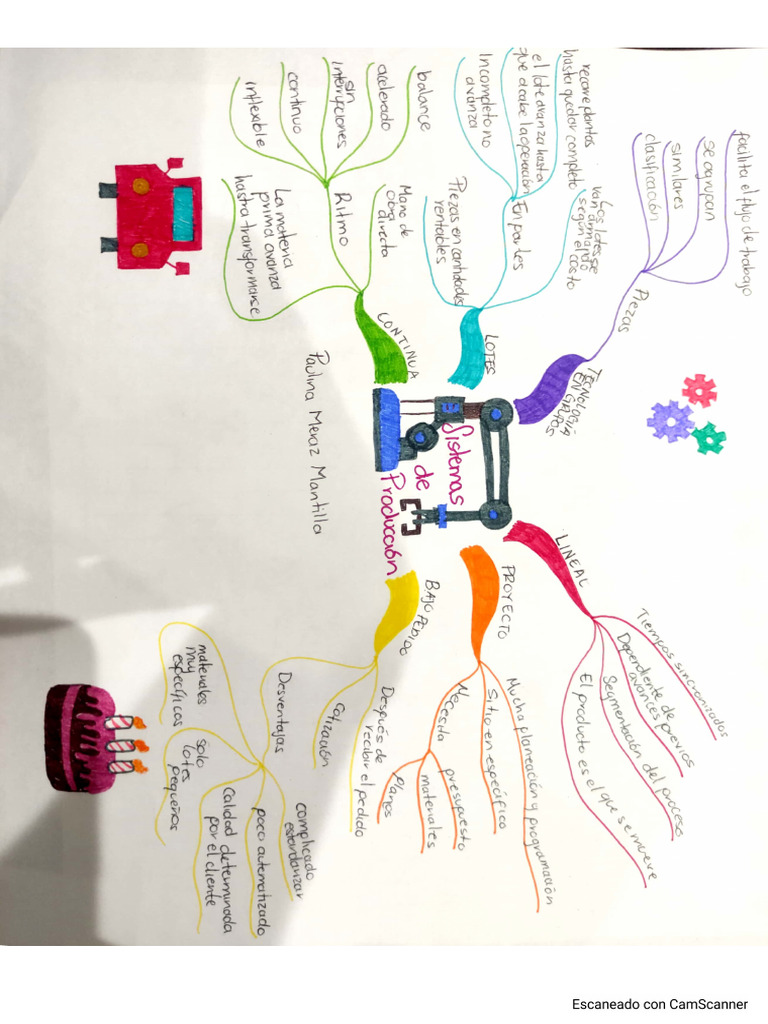 Sistemas
de
Producción
LINEAL
Tiempos sincronizados
Dependiente de previos
avances
Segmentación del proceso
El producto es el que se mueve
PROYECTO
Mucha planeación y programación
Sitio en específico
Necesita
presupuesto
materiales
planes
BAJO PEDIDO
Después de
recibir el pedido
Cotización
Desventajas
complicado
estandarizar
poco automatizado
Calidad determinada
por el cliente
solo
lotes
pequeños
materiales
muy
específicos
TECNOLOGÍA
EN GRUPOS
Piezas
facilita el flujo de trabajo
se agrupan
similares
clasificación
LOTES
Los lotes se
van armando
según el costo
En partes
recorre plantas
hasta quedar completo
el lote avanza hasta
que acabe la operación
Incompleto no
avanza
Piezas en cantidades
rentables
CONTINUA
Mano de
obra
directa
Ritmo
balance
acelerado
sin
interrupciones
continuo
inflexible
La materia
prima avanza
hasta transformarse
Paulina Meraz Mantilla
Escaneado con CamScanner